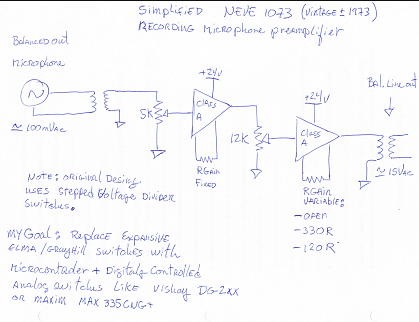 Simplified NEVE 1073 (vintage ± 1973)
Recording microphone preamplifier
Balanced out
microphone
+24V
+24V
Bal. Line out
5K
CLASS
A
12K
CLASS
A
≈ 100mVAC
≈ 15VAC
RGAIN
FIXED
RGAIN
VARIABLE:
- OPEN
- 330R
- 120R
NOTE: ORIGINAL Desing
USES Stepped Voltage Divider
Switches.
MY Goal: Replace Expansive
ELMA/Grayhill switches with
Microcontroder + Digitaly Controlled
Analog switches Like Vishay DG-2XX
OR MAXIM MAX335CNG+